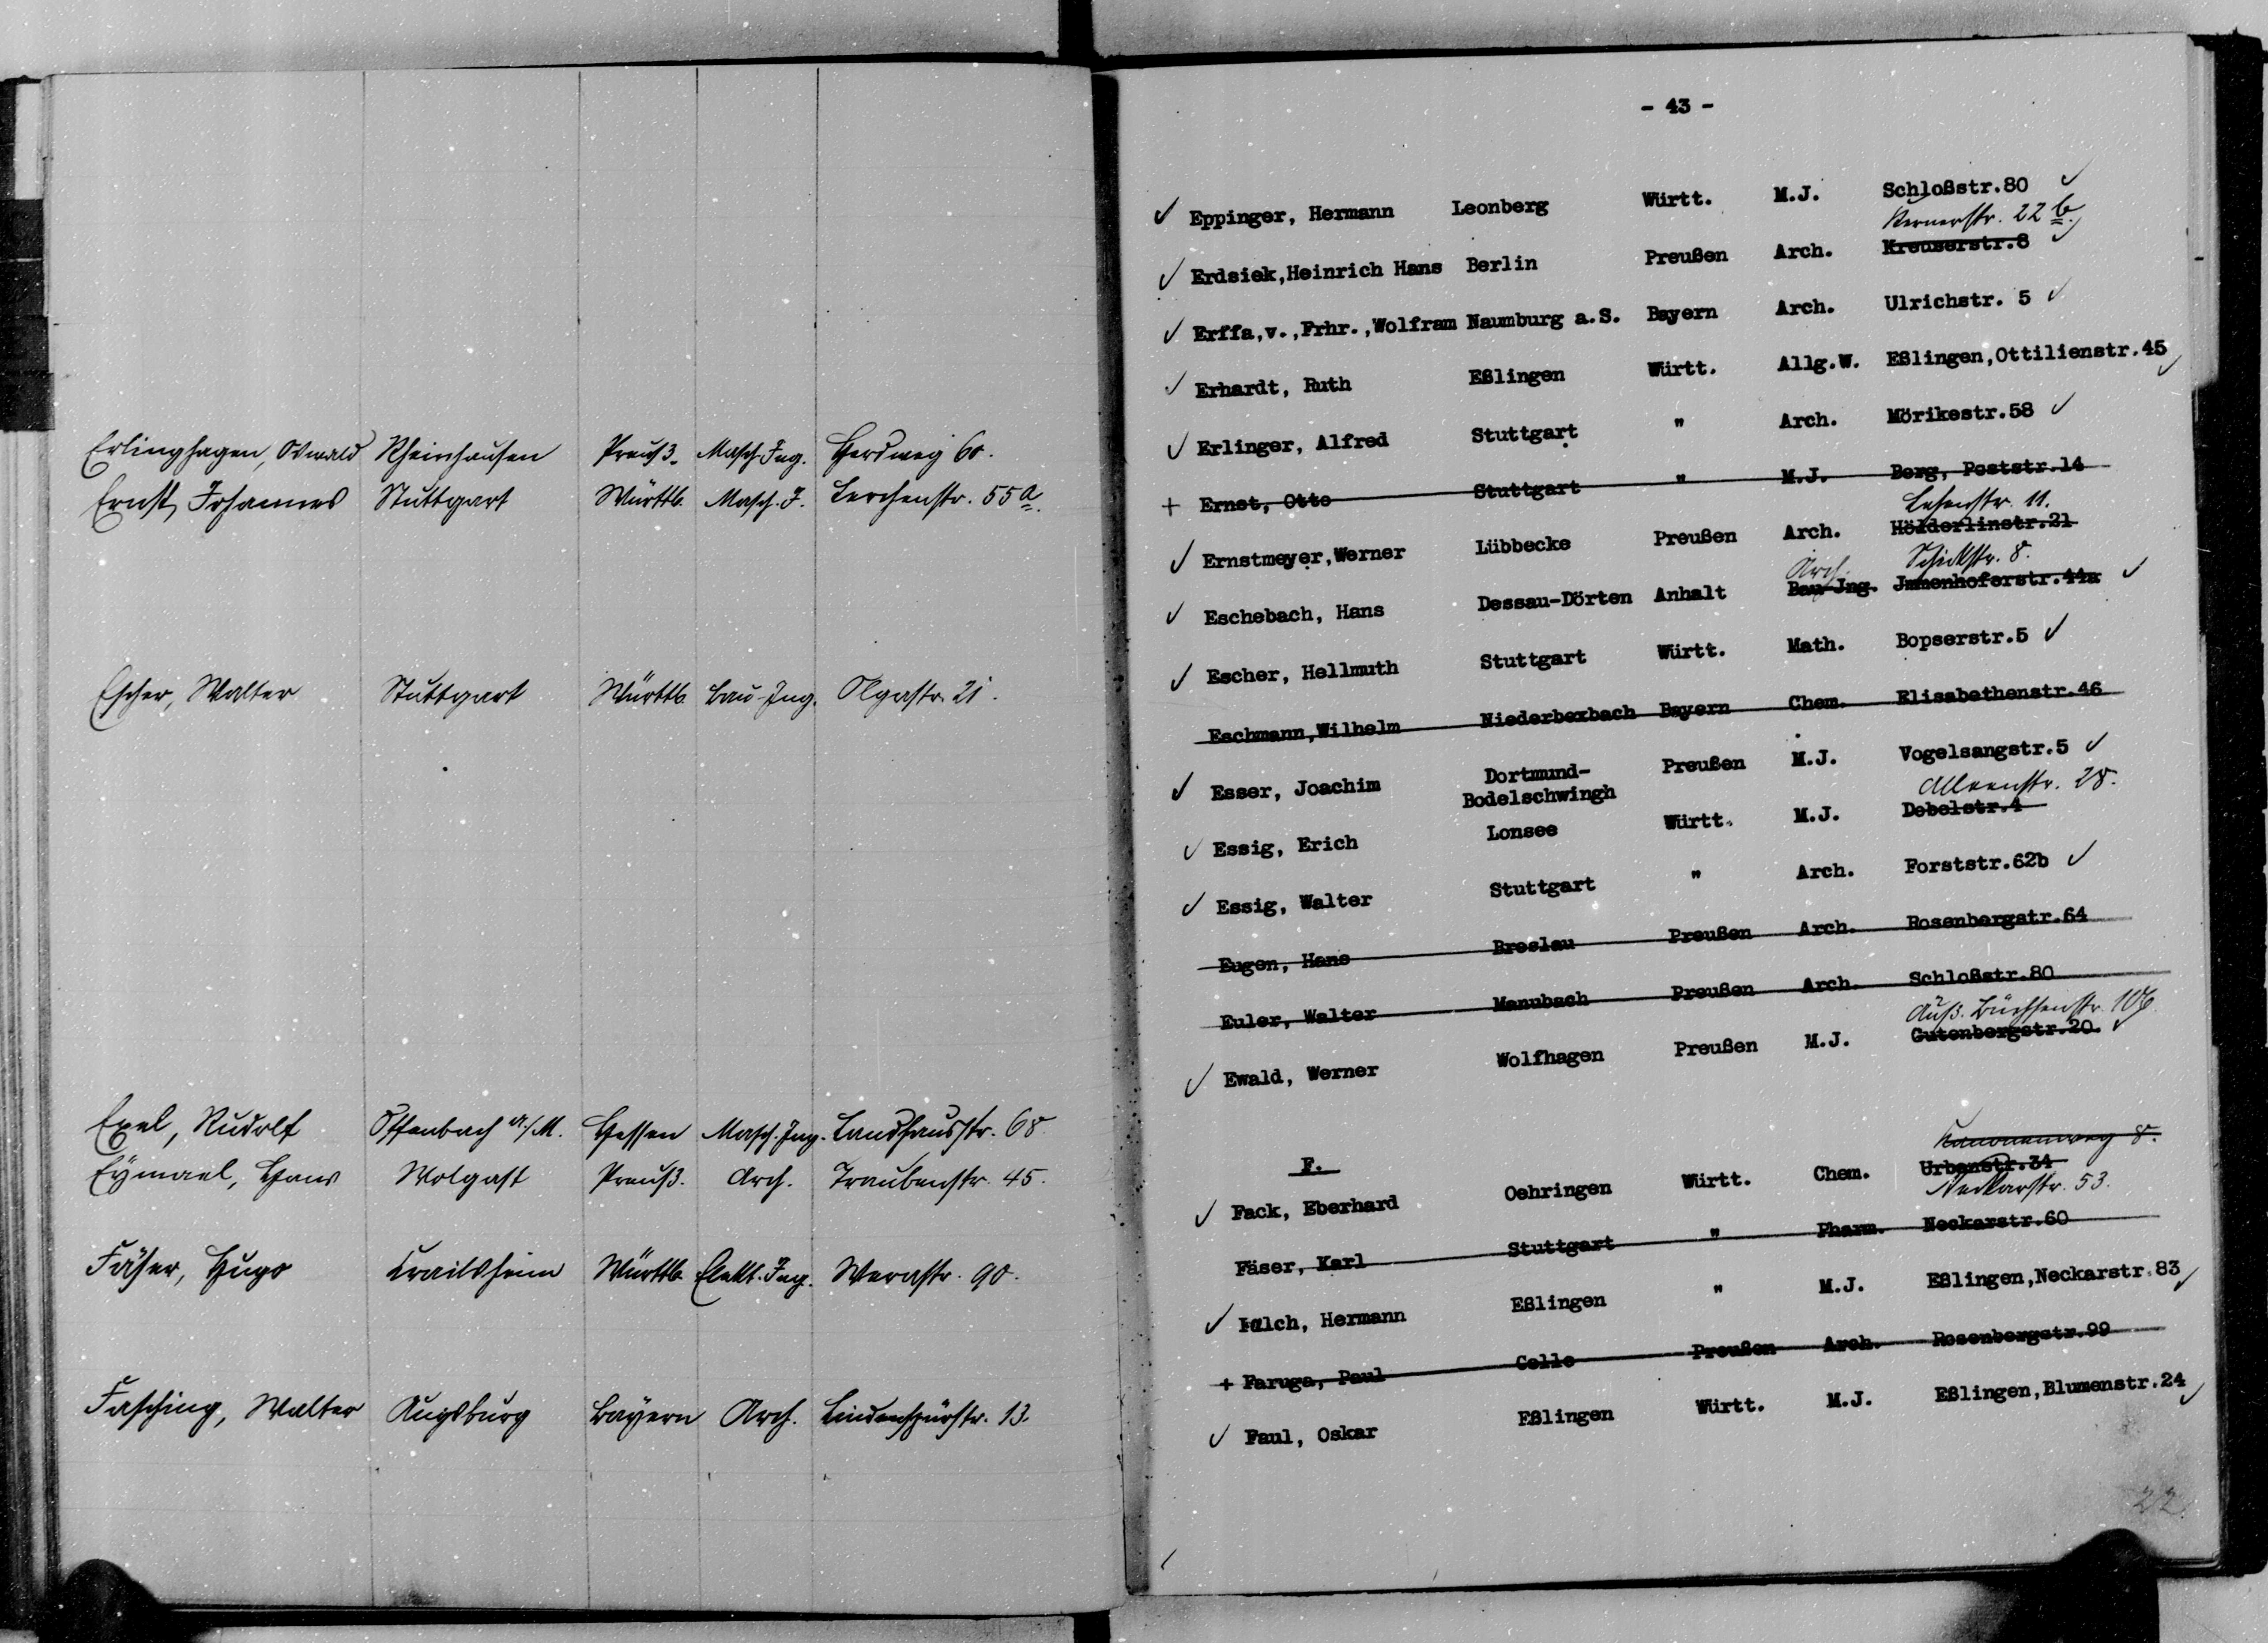 Erlinghagen, Oswald Rheinhausen Preuß. Masch. Ing. Herdweg 60.
Ernst, Johannes Stuttgart Württb. Masch. I. Lerchenstr. 55a.
Escher, Walter Stuttgart Württb. Bau-Ing. Olgastr. 21.
Exel, Rudolf Offenbach a/M. Hessen Masch. Ing. Landhausstr. 68
Eÿmael, Hans Wolgast Preuß. Arch. Traubenstr. 45.
Fäser, Hugo Crailsheim Württb. Elekt. Ing. Werastr. 90.
Fasching, Walter Augsburg Bayern Arch. Lindenspürstr. 13.
- 43 -
✓ Eppinger, Hermann Leonberg Württ. M.J. Schloßstr.80 ✓
Kernerstr. 22 b.
✓ Erdsiek,Heinrich Hans Berlin Preußen Arch. Kreuserstr.8 ✓
✓ Erffa,v.,Frhr.,Wolfram Naumburg a.S. Bayern Arch. Ulrichstr. 5 ✓
✓ Erhardt, Ruth Eßlingen Württ. Allg.W. Eßlingen,Ottilienstr.45 ✓
✓ Erlinger, Alfred Stuttgart " Arch. Mörikestr.58 ✓
+ Ernst, Otto Stuttgart " M.J. Berg, Poststr.14
11.
✓ Ernstmeyer,Werner Lübbecke Preußen Arch. Hölderlinstr.21
Arch. Schickstr. 8.
✓ Eschebach, Hans Dessau-Dörten Anhalt Bau-Jng. Jmmenhoferstr.44a ✓
✓ Escher, Hellmuth Stuttgart Württ. Math. Bopserstr.5 ✓
Eschmann,Wilhelm Niederbexbach Bayern Chem. Elisabethenstr.46
✓ Esser, Joachim Dortmund- Preußen M.J. Vogelsangstr.5 ✓
Bodelschwingh Alleenstr. 28.
✓ Essig, Erich Lonsee Württ. M.J. Debelstr.4
✓ Essig, Walter Stuttgart " Arch. Forststr.62b ✓
Eugen, Hans Breslau Preußen Arch. Rosenbergstr.64
Euler, Walter Manubach Preußen Arch. Schloßstr.80
Äuß. Büchsenstr. 106
✓ Ewald, Werner Wolfhagen Preußen M.J. Gutenbergstr.20. ✓
Kanonenweg 8.
F.
✓ Fack, Eberhard Oehringen Württ. Chem. Urbanstr.34
Neckarstr. 53.
Fäser, Karl Stuttgart " Pharm. Neckarstr.60
✓ Falch, Hermann Eßlingen " M.J. Eßlingen,Neckarstr.83 ✓
+ Faruga, Paul Celle Preußen Arch. Rosenbergstr.99
✓ Faul, Oskar Eßlingen Württ. M.J. Eßlingen,Blumenstr.24 ✓
22